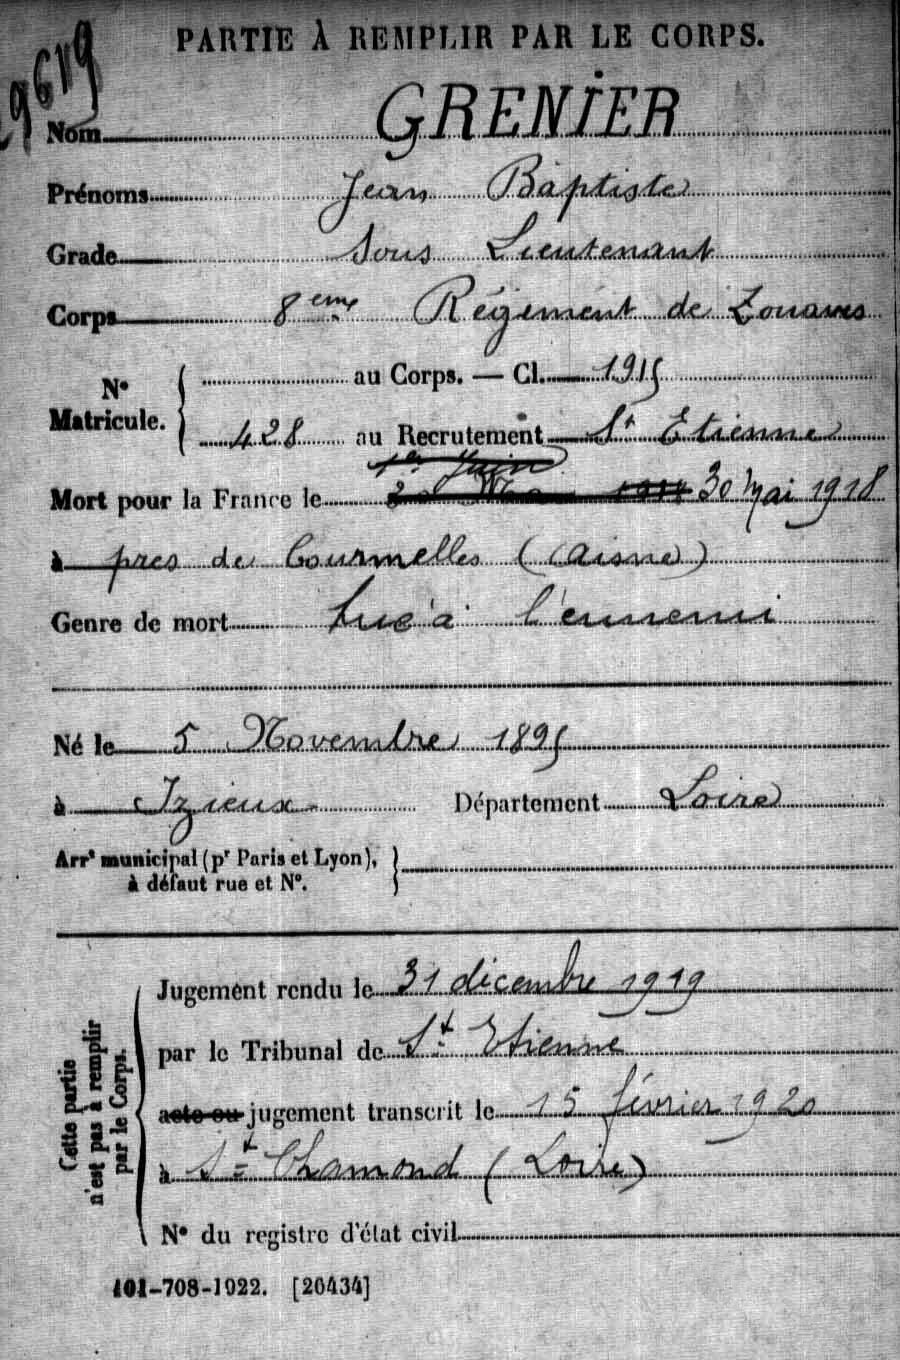 PARTIE À REMPLIR PAR LE CORPS.
9619
Nom GRENIER
Prénoms Jean Baptiste
Grade Sous Lieutenant
Corps 8eme Régiment de Zouaves
N° Matricule. au Corps. — Cl. 1915
428 au Recrutement St Etienne
1er Juin
Mort pour la France le 30 Mai 1918
à pres de Courmelles (Aisne)
Genre de mort tué à l'ennemi
Né le 5 Novembre 1895
à Izieux Département Loire
Arrt municipal (pr Paris et Lyon),
à défaut rue et N°.
Cette partie n'est pas à remplir par le Corps.
Jugement rendu le 31 décembre 1919
par le Tribunal de St Etienne
acte ou jugement transcrit le 15 février 1920
à St Chamond (Loire)
N° du registre d'état civil
101-708-1922. [26434]